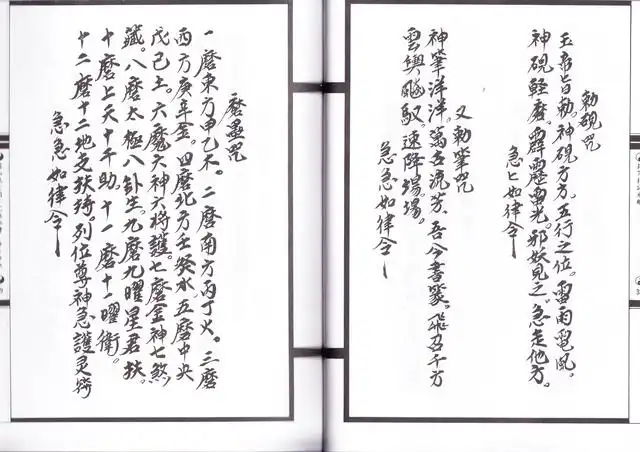 勅硯咒
玉帝旨勅。神硯方方。五行之位。雷雨電風。
神硯輕磨。霹靂雷光。邪妖見之。急走他方。
急匕如律令
又勅筆咒
神筆洋洋。萬古流芳。吾今書篆。飛召千方
雲輿飈馭。速降壇場。
急急如律令
磨墨咒
一磨東方甲乙木。二磨南方丙丁火。三磨
西方庚辛金。四磨北方壬癸水。五磨中央
戊己土。六磨六神六將護。七磨金神七煞
藏。八磨太極八卦生。九磨九曜星君扶。
十磨上天十干助。十一磨十一曜衛。
十二磨十二地支扶持。列位尊神急護灵符
急急如律令